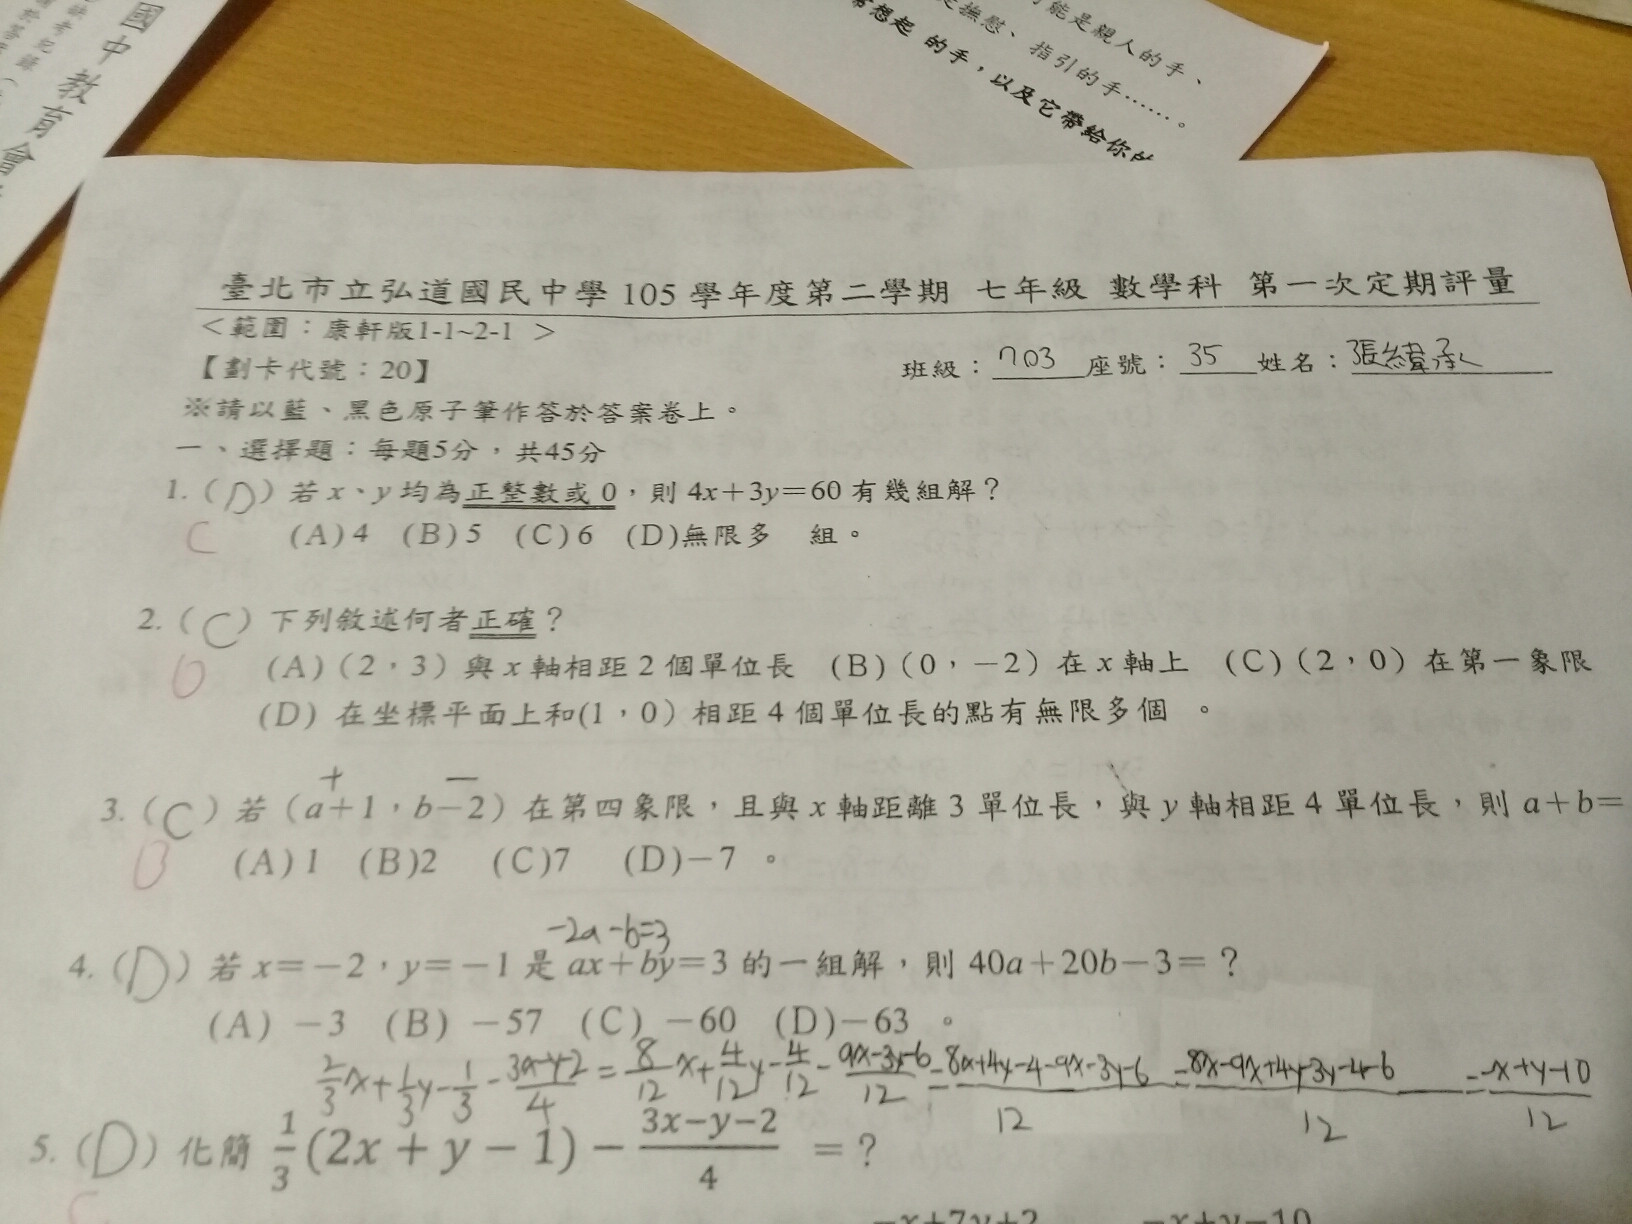 國中教育會
可能是親人的手、
撫慰、指引的手……。
常想起的手,以及它帶給你的
臺北市立弘道國民中學 105 學年度第二學期 七年級 數學科 第一次定期評量
<範圍:康軒版1-1~2-1 >
【劃卡代號:20】
班級:703 座號:35 姓名:張緯承
※請以藍、黑色原子筆作答於答案卷上。
一、選擇題:每題5分,共45分
1.(D)若 x、y 均為正整數或 0,則 4x+3y=60 有幾組解?
C (A)4 (B)5 (C)6 (D)無限多 組。
2.(C)下列敘述何者正確?
D (A)(2,3)與 x 軸相距 2 個單位長 (B)(0,-2)在 x 軸上 (C)(2,0)在第一象限
(D)在坐標平面上和(1,0)相距 4 個單位長的點有無限多個 。
+ -
3.(C)若(a+1,b-2)在第四象限,且與 x 軸距離 3 單位長,與 y 軸相距 4 單位長,則 a+b=
B (A)1 (B)2 (C)7 (D)-7 。
-2a-b=3
4.(D)若 x=-2,y=-1 是 ax+by=3 的一組解,則 40a+20b-3=?
(A) -3 (B) -57 (C) -60 (D)-63 。
2/3x+1/3y-1/3-3x-y-2/4=8/12x+4/12y-4/12-9x-3y-6/12=8x+4y-4-9x-3y-6/12=8x-9x+4y-3y-4-6/12=-x+y-10/12
5.(D)化簡 1/3(2x+y-1)-3x-y-2/4 =?
C
-x+7y+2 -x+y-10